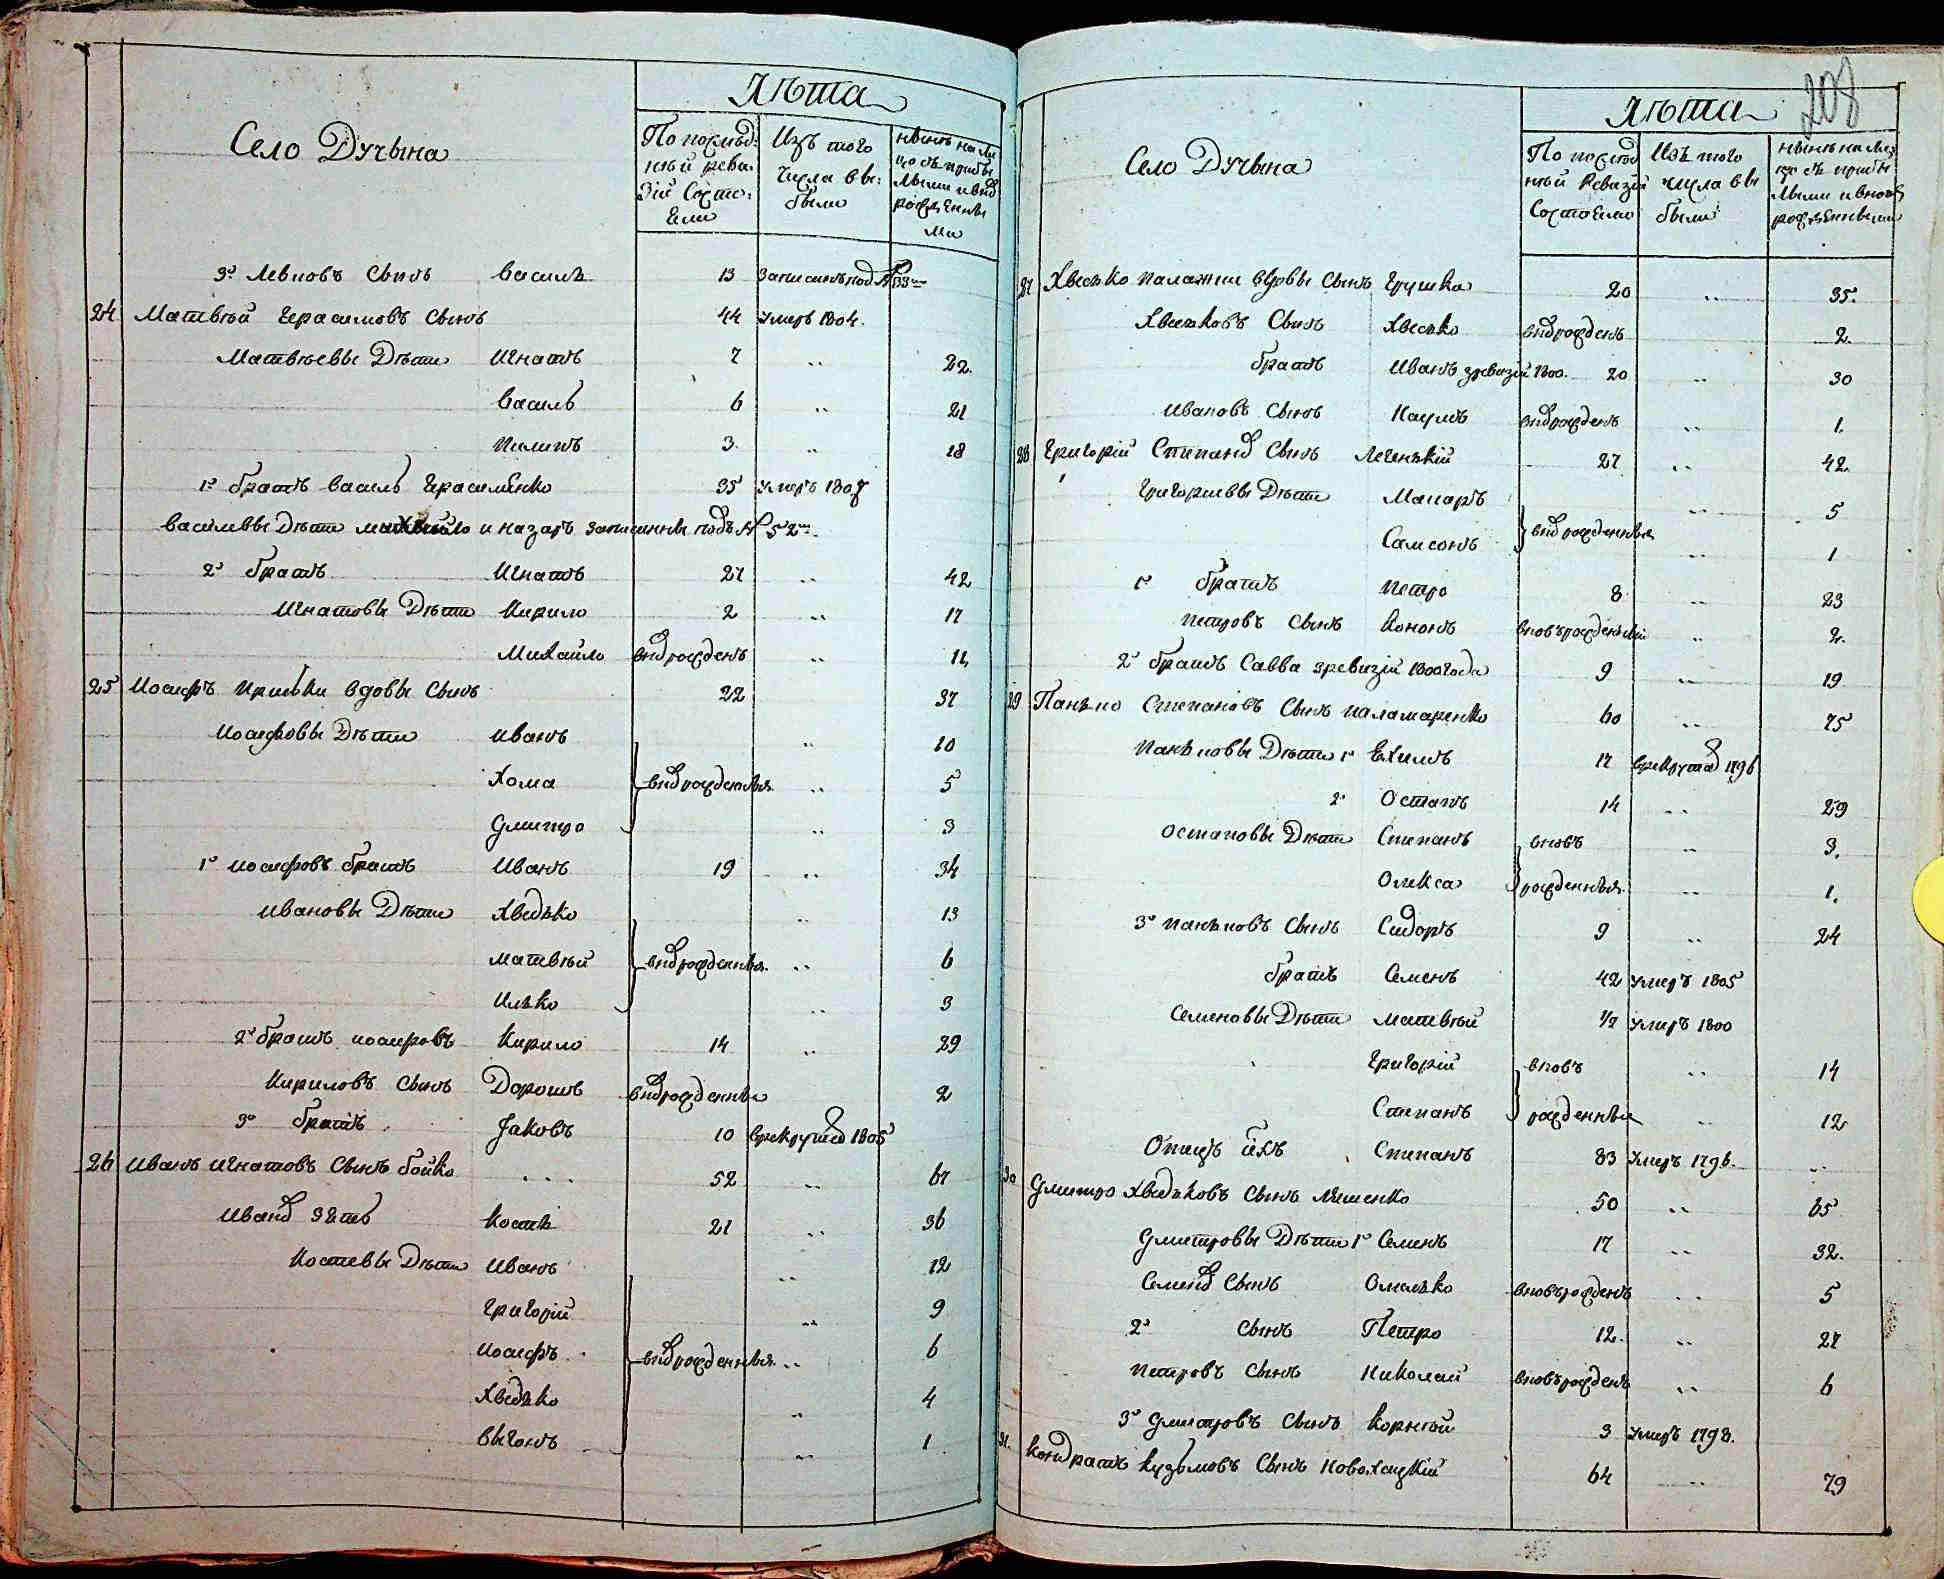 Лѣта
Село Дучына
По послѣд-
ней реви-
зіи состо-
яли
Изъ того
числа вы-
были
Нынѣ на ли-
цо съ прибы-
лыми и внов
рожденны-
ми
3й Левковъ сынъ Василь 13 записанъ под №33мъ
24 Матвѣй Герасимовъ сынъ 44 умеръ 1804.
Матвѣевы Дѣти Игнатъ 7 .. 22.
Василь 6 .. 21
Пилипъ 3 .. 18
1й братъ Василь Герасименко 35 умеръ 1807
Василевы Дѣти и Назаръ записаны подъ № 52мъ.
2й братъ Игнатъ 27 .. 42
Игнатовы Дѣти Кирило 2 .. 17
Михайло вноврожденъ .. 11
25 Иосифъ Приськи вдовы сынъ 22 37
Иосифовы Дѣти Иванъ .. 10
Хома вновророжденныя .. 5
Дмитро .. 3
1й Иосифовъ братъ Иванъ 19 .. 34
Ивановы Дѣти Хведько .. 13
Матвѣй вноврожденныя .. 6
Илько .. 3
2й братъ Иосифовъ Кирило 14 .. 29
Кириловъ сынъ Дорошъ вноврожденны 2
3й братъ Яковъ 10 врекруты 1805
26 Иванъ Игнатовъ сынъ Бойко .... 52 .. 67
Иванов зять Кость 21 .. 36
Костевы Дѣти Иванъ .. 12
Григорій .. 9
Иосифъ вноврожденныя .. 6
Хведько .. 4
Выгонъ .. 1
208
Лѣта
Село Дучына
По послѣд
ней Ревизіи
Состояли
Изъ того
числа вы
были
Нынѣ на лиц
цо съ прибы
лыми и вновь
рожденными
27 Хвесько Палажки вдовы сынъ Грушка 20 .. 35.
Хвеськовъ Сынъ Хвесько вноврожденъ 2.
братъ Иванъ зревизіи 1800. 20 .. 30
Ивановъ сынъ Наумъ вноврожденъ .. 1.
28 Григорій Степанов Сынъ Легенькій 27 .. 42.
Григориевы Дѣти Макаръ .. 5
Самсонъ вноврожденныя .. 1
1й братъ Петро 8 .. 23
Петровъ сынъ Кононъ .. 2.
2й братъ Савва зревизіи 1800 года 9 .. 19
29 Панько Степановъ Сынъ Паламаренко 60 .. 75
Паньковы Дѣти 1й Евхимъ 17 врекрутах 1796
2й Остапъ 14 .. 29
Остаповы Дѣти Степанъ вновь .. 3.
Олекса рожденныя .. 1.
3й Паньковъ Сынъ Сидоръ 9 .. 24
братъ Семенъ 42 умеръ 1805
Семеновы Дѣти Матвѣй 1/2 умеръ 1800
Григорій вновь .. 14
Степанъ рожденные .. 12
Отецъ ихъ Степанъ 83 Умеръ 1796. ..
30 Дмитро Хведьковъ Сынъ 50 .. 65
Дмитровы Дѣти 1й Семенъ 17 .. 32.
Семенов Сынъ Омелько вновърожденъ .. 5
2й сынъ Петро 12. .. 27
Петровъ Сынъ Николай вновърожденъ .. 6
3й Дмитровъ Сынъ Корнѣй 3 умеръ 1798.
31. Кондратъ Кузьмовъ Сынъ Новохацкій 64 .. 79